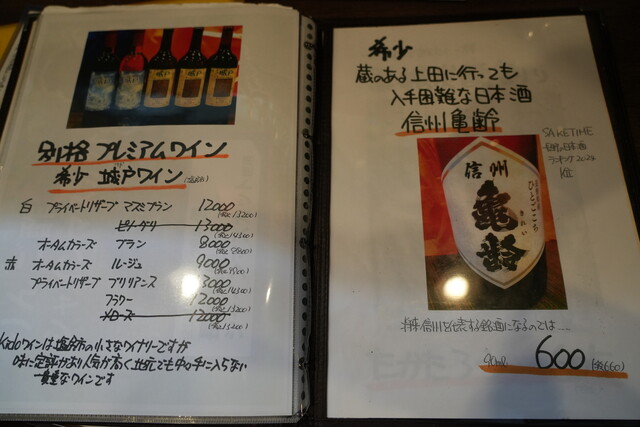 別格 プレミアムワイン
希少 城戸ワイン
白 プライベートリザーブ プラン 12000
(税込13200)
13000
(税込14300)
オータムカラーズ ブラン 8000
(税込8800)
赤 オータムカラーズ ルージュ 9000
プライベートリザーブ ブリリアンス 13000
(税込14300)
フラワー 12000
(税込13200)
12000
(税込13200)
Kidoワインは塩尻市の小さなワイナリーですが
味に定評があり人気が高く地元でも中々手に入らない
貴重なワインです
希少
蔵のある上田に行っても
入手困難な日本酒
信州亀齢
SAKETIME
日本酒
ランキング2024
信州
亀齢
きれい
ひとごこち
将来信州を代表する銘酒になるのでは…
90ml 600 (税込660)